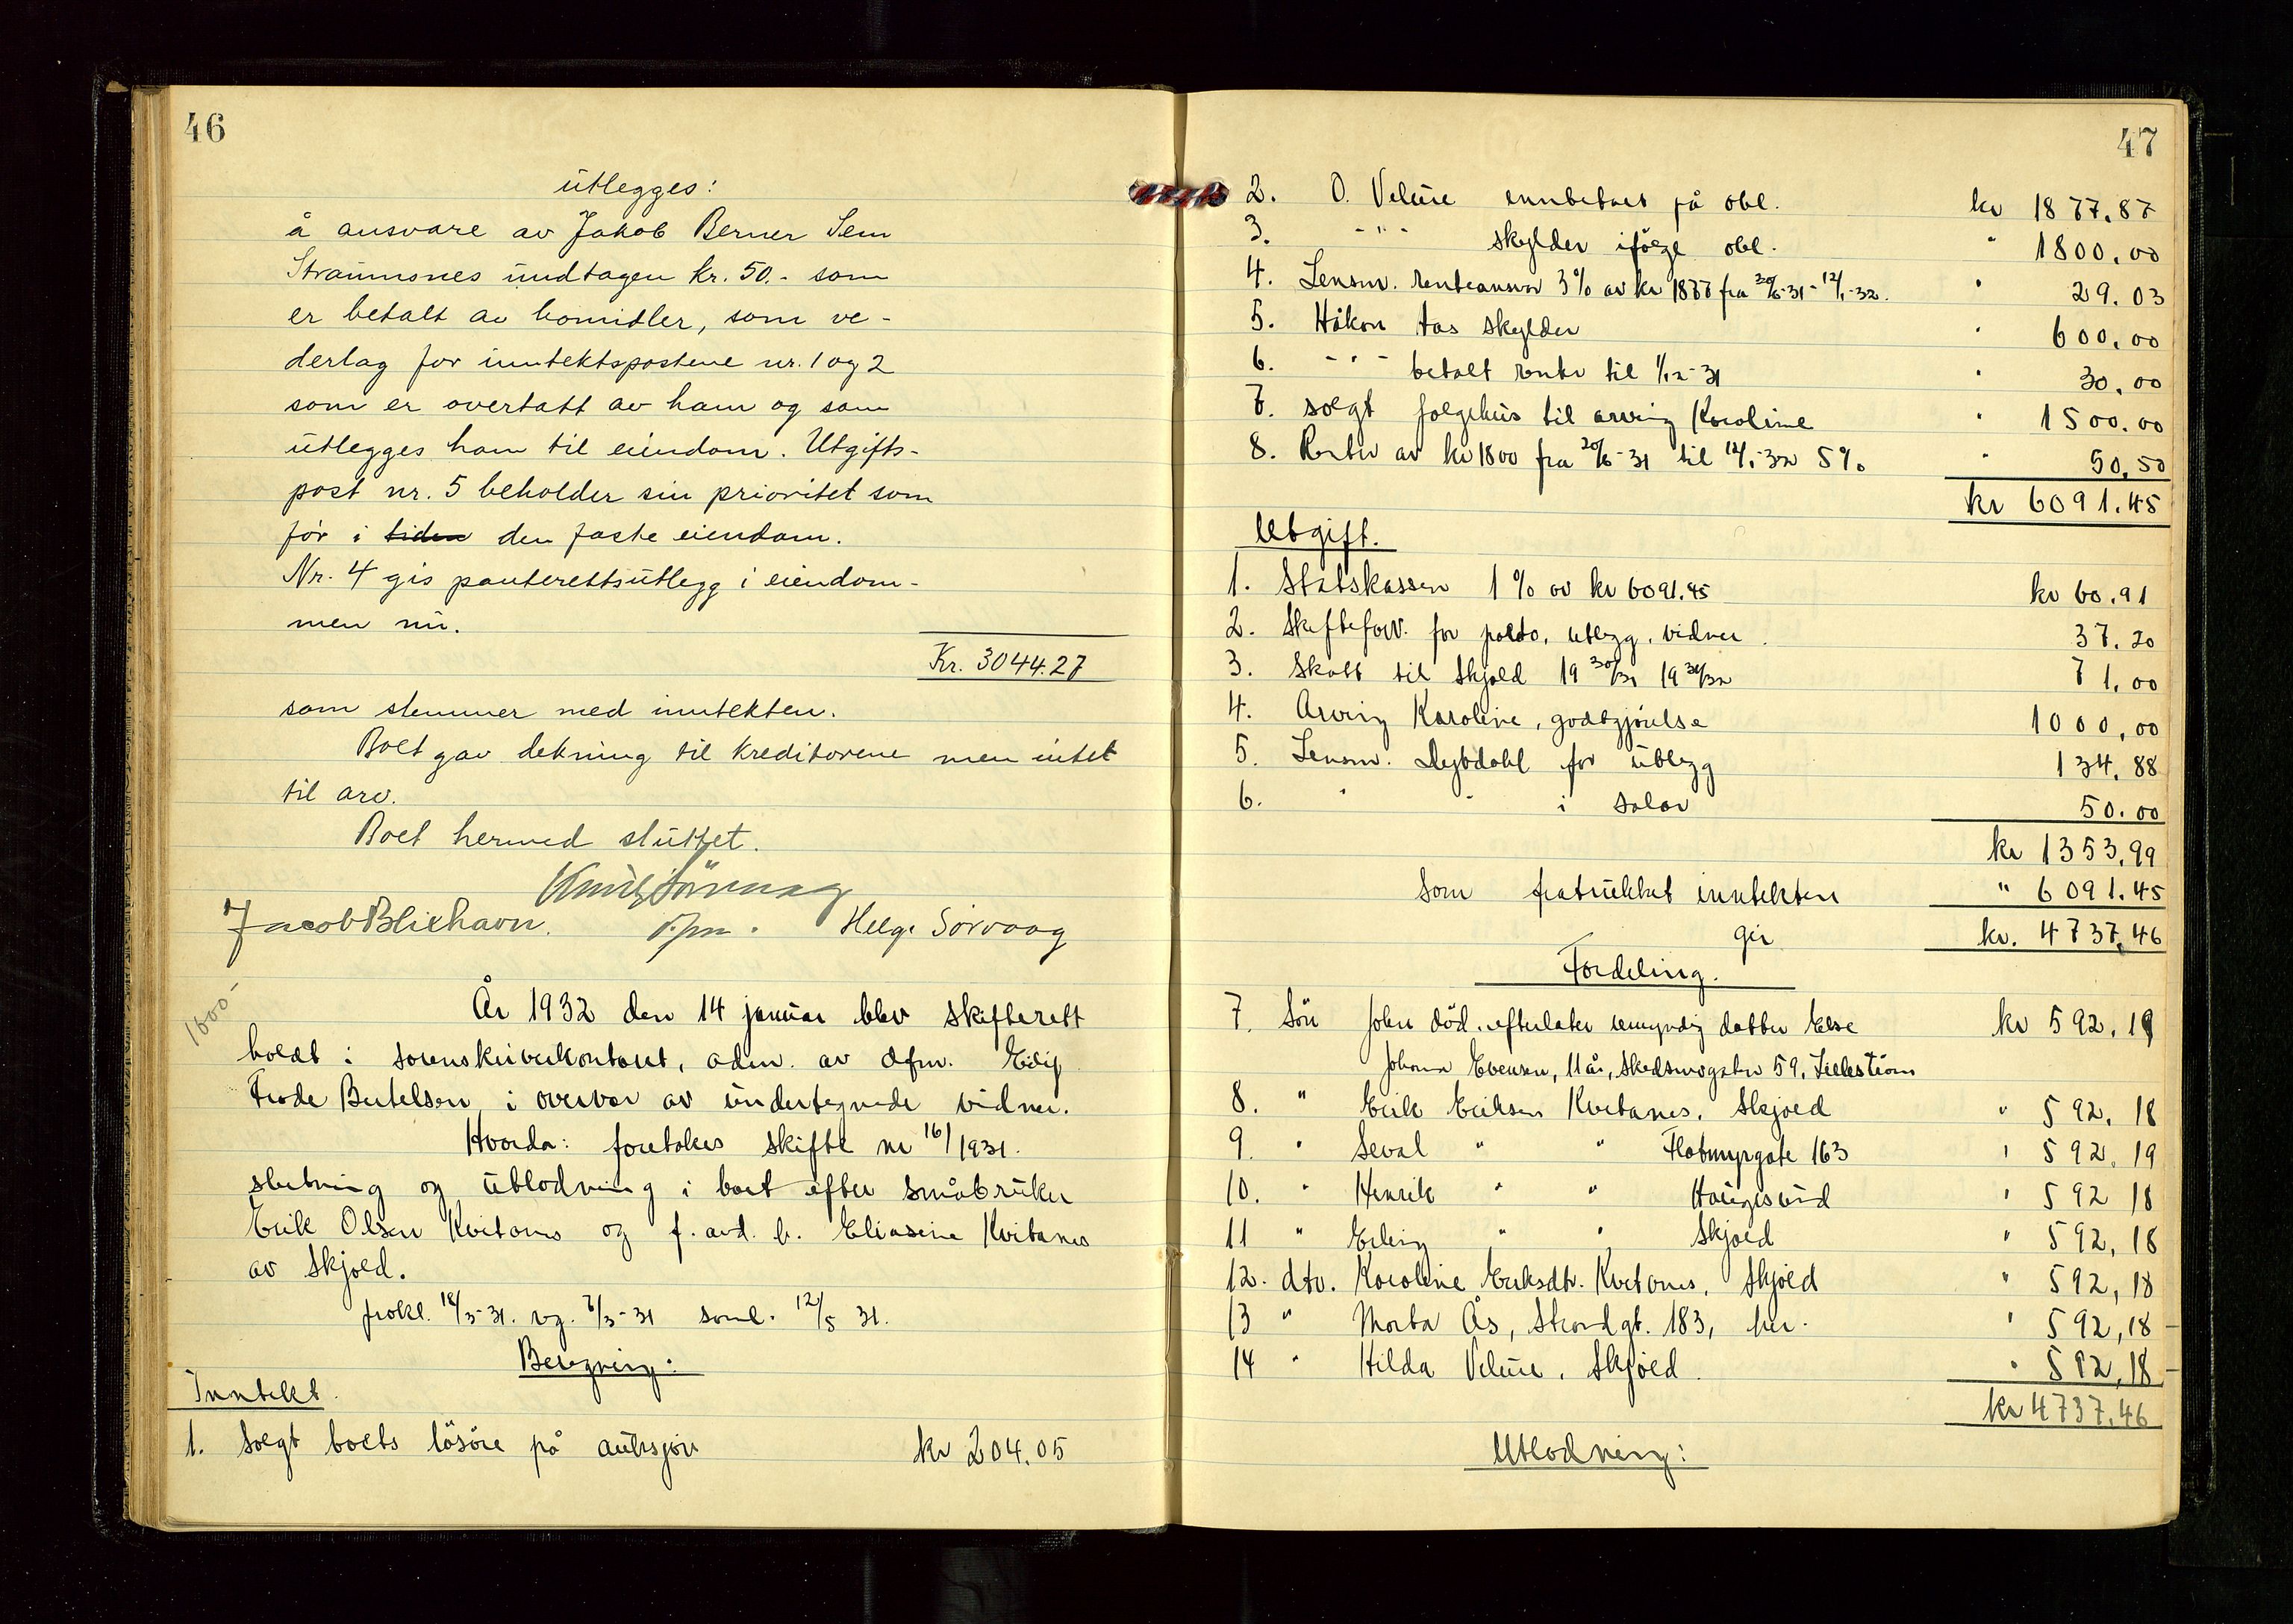 46
utlegges:
å ansvare av Jakob Berner Sem
Straumsnes undtagen kr. 50.- som
er betalt av bomidler, som ve-
derlag for inntektspostene nr. 1 og 2
som er overtatt av ham og som
utlegges ham til eiendom. Utgifts-
post nr. 5 beholder sin prioritet som
før i tiden den faste eiendom.
Nr. 4 gis panterettsutlegg i eiendom-
men nu.
Kr. 3044.27
som stemmer med inntekten.
Boet gav dekning til kreditorene men intet
til arv.
Boet hermed sluttet.
Knut Sörvaag
Jacob Blixhavn. Helge Sörvaag
1600-
År 1932 den 14 januar blev skifterett
holdt i sorenskriverkontoret, adm. av dfm.
Frode Bertelsen, i overvær av undertegnede vidner.
Hvorda: foretokes skifte nr 16/1931.
slutning og utlodning i boet efter småbruker
Erik Olsen Kvitanes og f. avd. h. Eliasine Kvitanes
av Skjold.
prokl. 18/3-31. rg. 7/3-31 saml. 12/5 31.
Beregning:
Inntekt.
1. Solgt boets lösöre på auksjon kr 204.05
47
2. O. Velure innbetalt på obl. kr 1877.87
3. - " - skylder ifölge obl. " 1800.00
4. Lensm. renteansvar 3% av kr 1877 fra 20/6-31 - 12/1-32. " 29.03
5. Håkon Aas skylder " 600.00
6. - " - betalt rente til 1/12-31 " 30.00
7. solgt folgehus til arving Karoline " 1500.00
8. Renter av kr 1800 fra 20/6-31 til 12/1-32 5% " 50,50
kr 6091.45
Utgift.
1. Statskassen 1% av kr 6091.45 kr 60.91
2. Skifteforv. for porto, utlegg, vidner 37.20
3. Skatt til Skjold 1930/31 1931/32 71.00
4. Arving Karoline, godtgjörelse 1000,00
5. Lensm. Dybdahl for utlegg 134.88
6. " " i salær 50.00
kr 1353,99
som fratrukket inntekten " 6091.45
gir kr. 4737,46
Fordeling.
7. Sön John död. efterlater umyndig datter Else kr 592,19
Johanna Evensen, 11 år, Skedsmogaten 59, Lilleström
8. " Erik Eriksen Kvitanes, Skjold " 592,18
9. " Seval " " Flotmyrgate 163 " 592,19
10. " Henrik " " Haugesund " 592 18
11 " Erling " " Skjold " 592,18
12. dtr. Karoline Eriksdtr. Kvitanes, Skjold " 592,18
13 " Marta Ås, Strandgt. 183, her. " 592,18 -
14 " Hilda Velure, Skjold " 592,18 -
kr 4737,46
Utlodning: